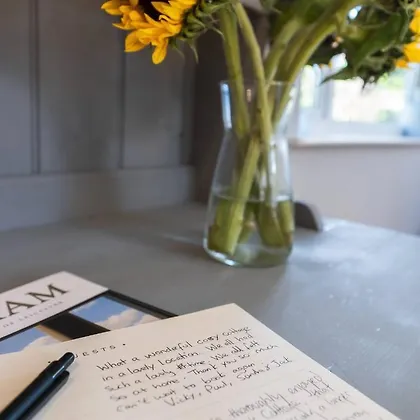 AM
ESTS.
What a wonderful cosy cottage
in a lovely location. We all had
such a lovely time. We all felt
so at home. Thank you so much
Can't wait to book again.
Vicky, Paul, Jack
thoroughly enjoyed